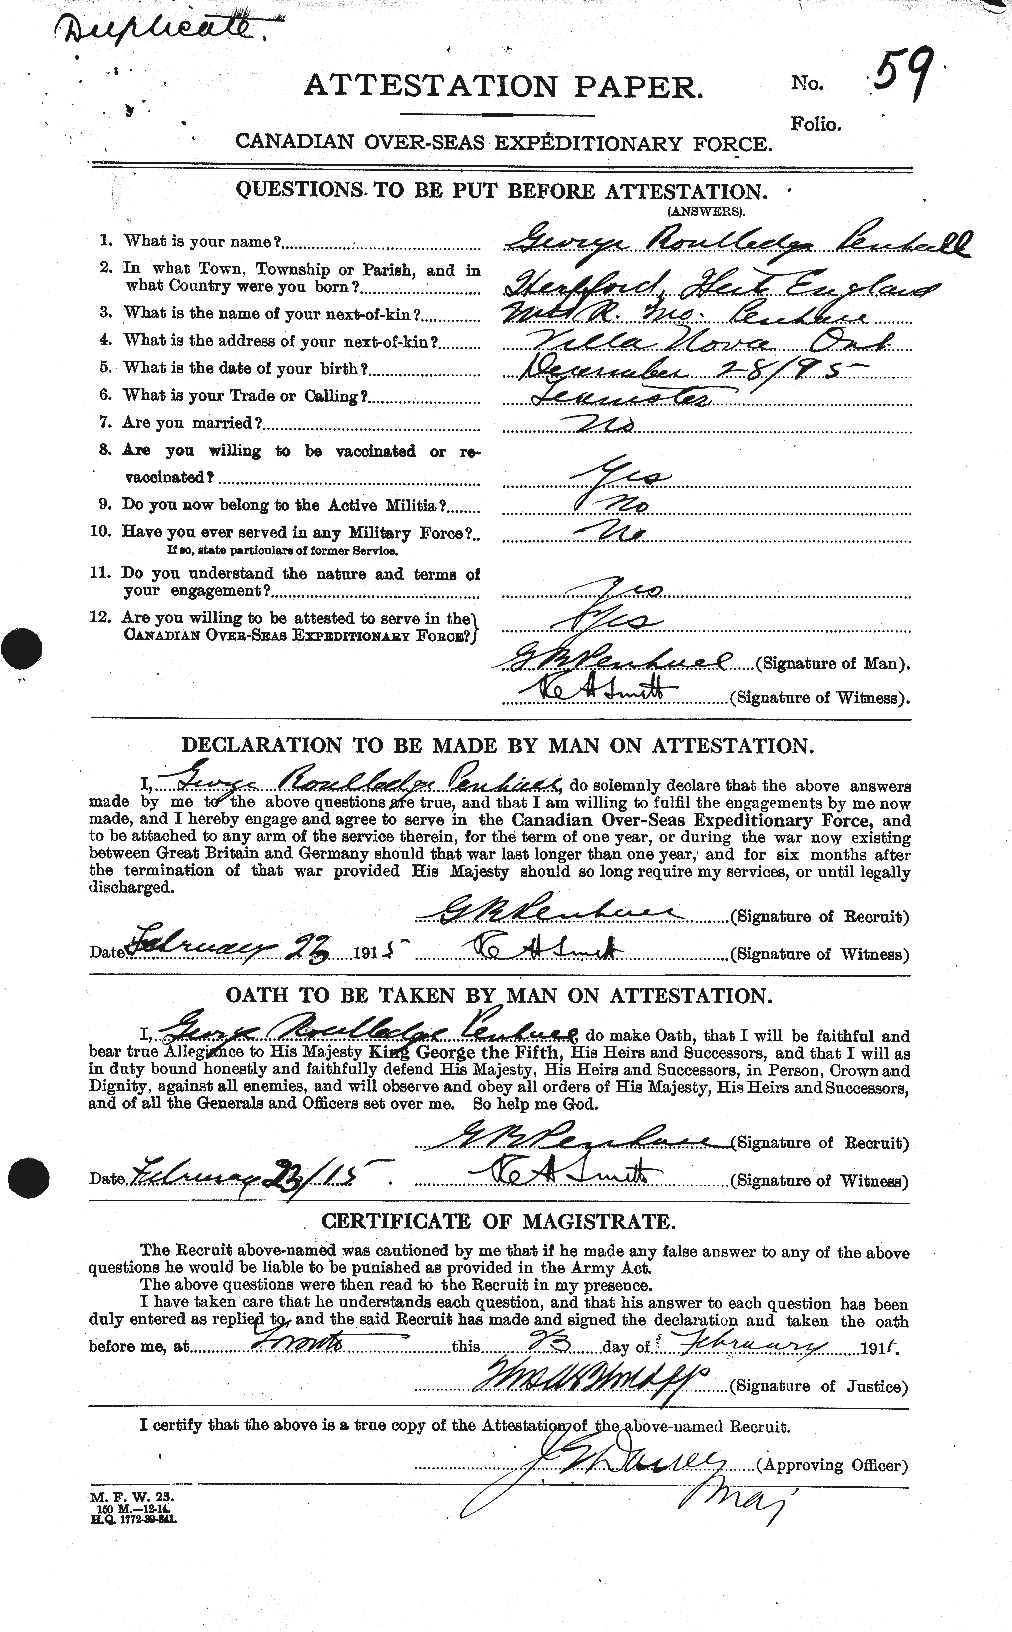 Duplicate.
ATTESTATION PAPER.
No. 59
Folio.
CANADIAN OVER-SEAS EXPEDITIONARY FORCE.
QUESTIONS TO BE PUT BEFORE ATTESTATION.
(ANSWERS).
1. What is your name? George Roulledge Penhall
2. In what Town, Township or Parish, and in
what Country were you born? Hertford, Hert England
3. What is the name of your next-of-kin? Mrs R. Mo. Penhall
4. What is the address of your next-of-kin? Villa Nova Ont
5. What is the date of your birth? December 28/95
6. What is your Trade or Calling? Teamster
7. Are you married? No
8. Are you willing to be vaccinated or re-
vaccinated? Yes
9. Do you now belong to the Active Militia? No
10. Have you ever served in any Military Force? No
If so, state particulars of former Service.
11. Do you understand the nature and terms of
your engagement? Yes
12. Are you willing to be attested to serve in the
CANADIAN OVER-SEAS EXPEDITIONARY FORCE? Yes
G R Penhall (Signature of Man).
A Smith (Signature of Witness).
DECLARATION TO BE MADE BY MAN ON ATTESTATION.
I, George Roulledge Penhall, do solemnly declare that the above answers
made by me to the above questions are true, and that I am willing to fulfil the engagements by me now
made, and I hereby engage and agree to serve in the Canadian Over-Seas Expeditionary Force, and
to be attached to any arm of the service therein, for the term of one year, or during the war now existing
between Great Britain and Germany should that war last longer than one year, and for six months after
the termination of that war provided His Majesty should so long require my services, or until legally
discharged.
G R Penhall (Signature of Recruit)
Date February 23 1915 A Smith (Signature of Witness)
OATH TO BE TAKEN BY MAN ON ATTESTATION.
I, George Roulledge Penhall, do make Oath, that I will be faithful and
bear true Allegiance to His Majesty King George the Fifth, His Heirs and Successors, and that I will as
in duty bound honestly and faithfully defend His Majesty, His Heirs and Successors, in Person, Crown and
Dignity, against all enemies, and will observe and obey all orders of His Majesty, His Heirs and Successors,
and of all the Generals and Officers set over me. So help me God.
G R Penhall (Signature of Recruit)
Date February 23/15 A Smith (Signature of Witness)
CERTIFICATE OF MAGISTRATE.
The Recruit above-named was cautioned by me that if he made any false answer to any of the above
questions he would be liable to be punished as provided in the Army Act.
The above questions were then read to the Recruit in my presence.
I have taken care that he understands each question, and that his answer to each question has been
duly entered as replied to, and the said Recruit has made and signed the declaration and taken the oath
before me, at Toronto this 23 day of February 1915.
(Signature of Justice)
I certify that the above is a true copy of the Attestation of the above-named Recruit.
(Approving Officer)
Maj
M. F. W. 23.
150 M.—12-14.
H.Q. 1772-39-841.